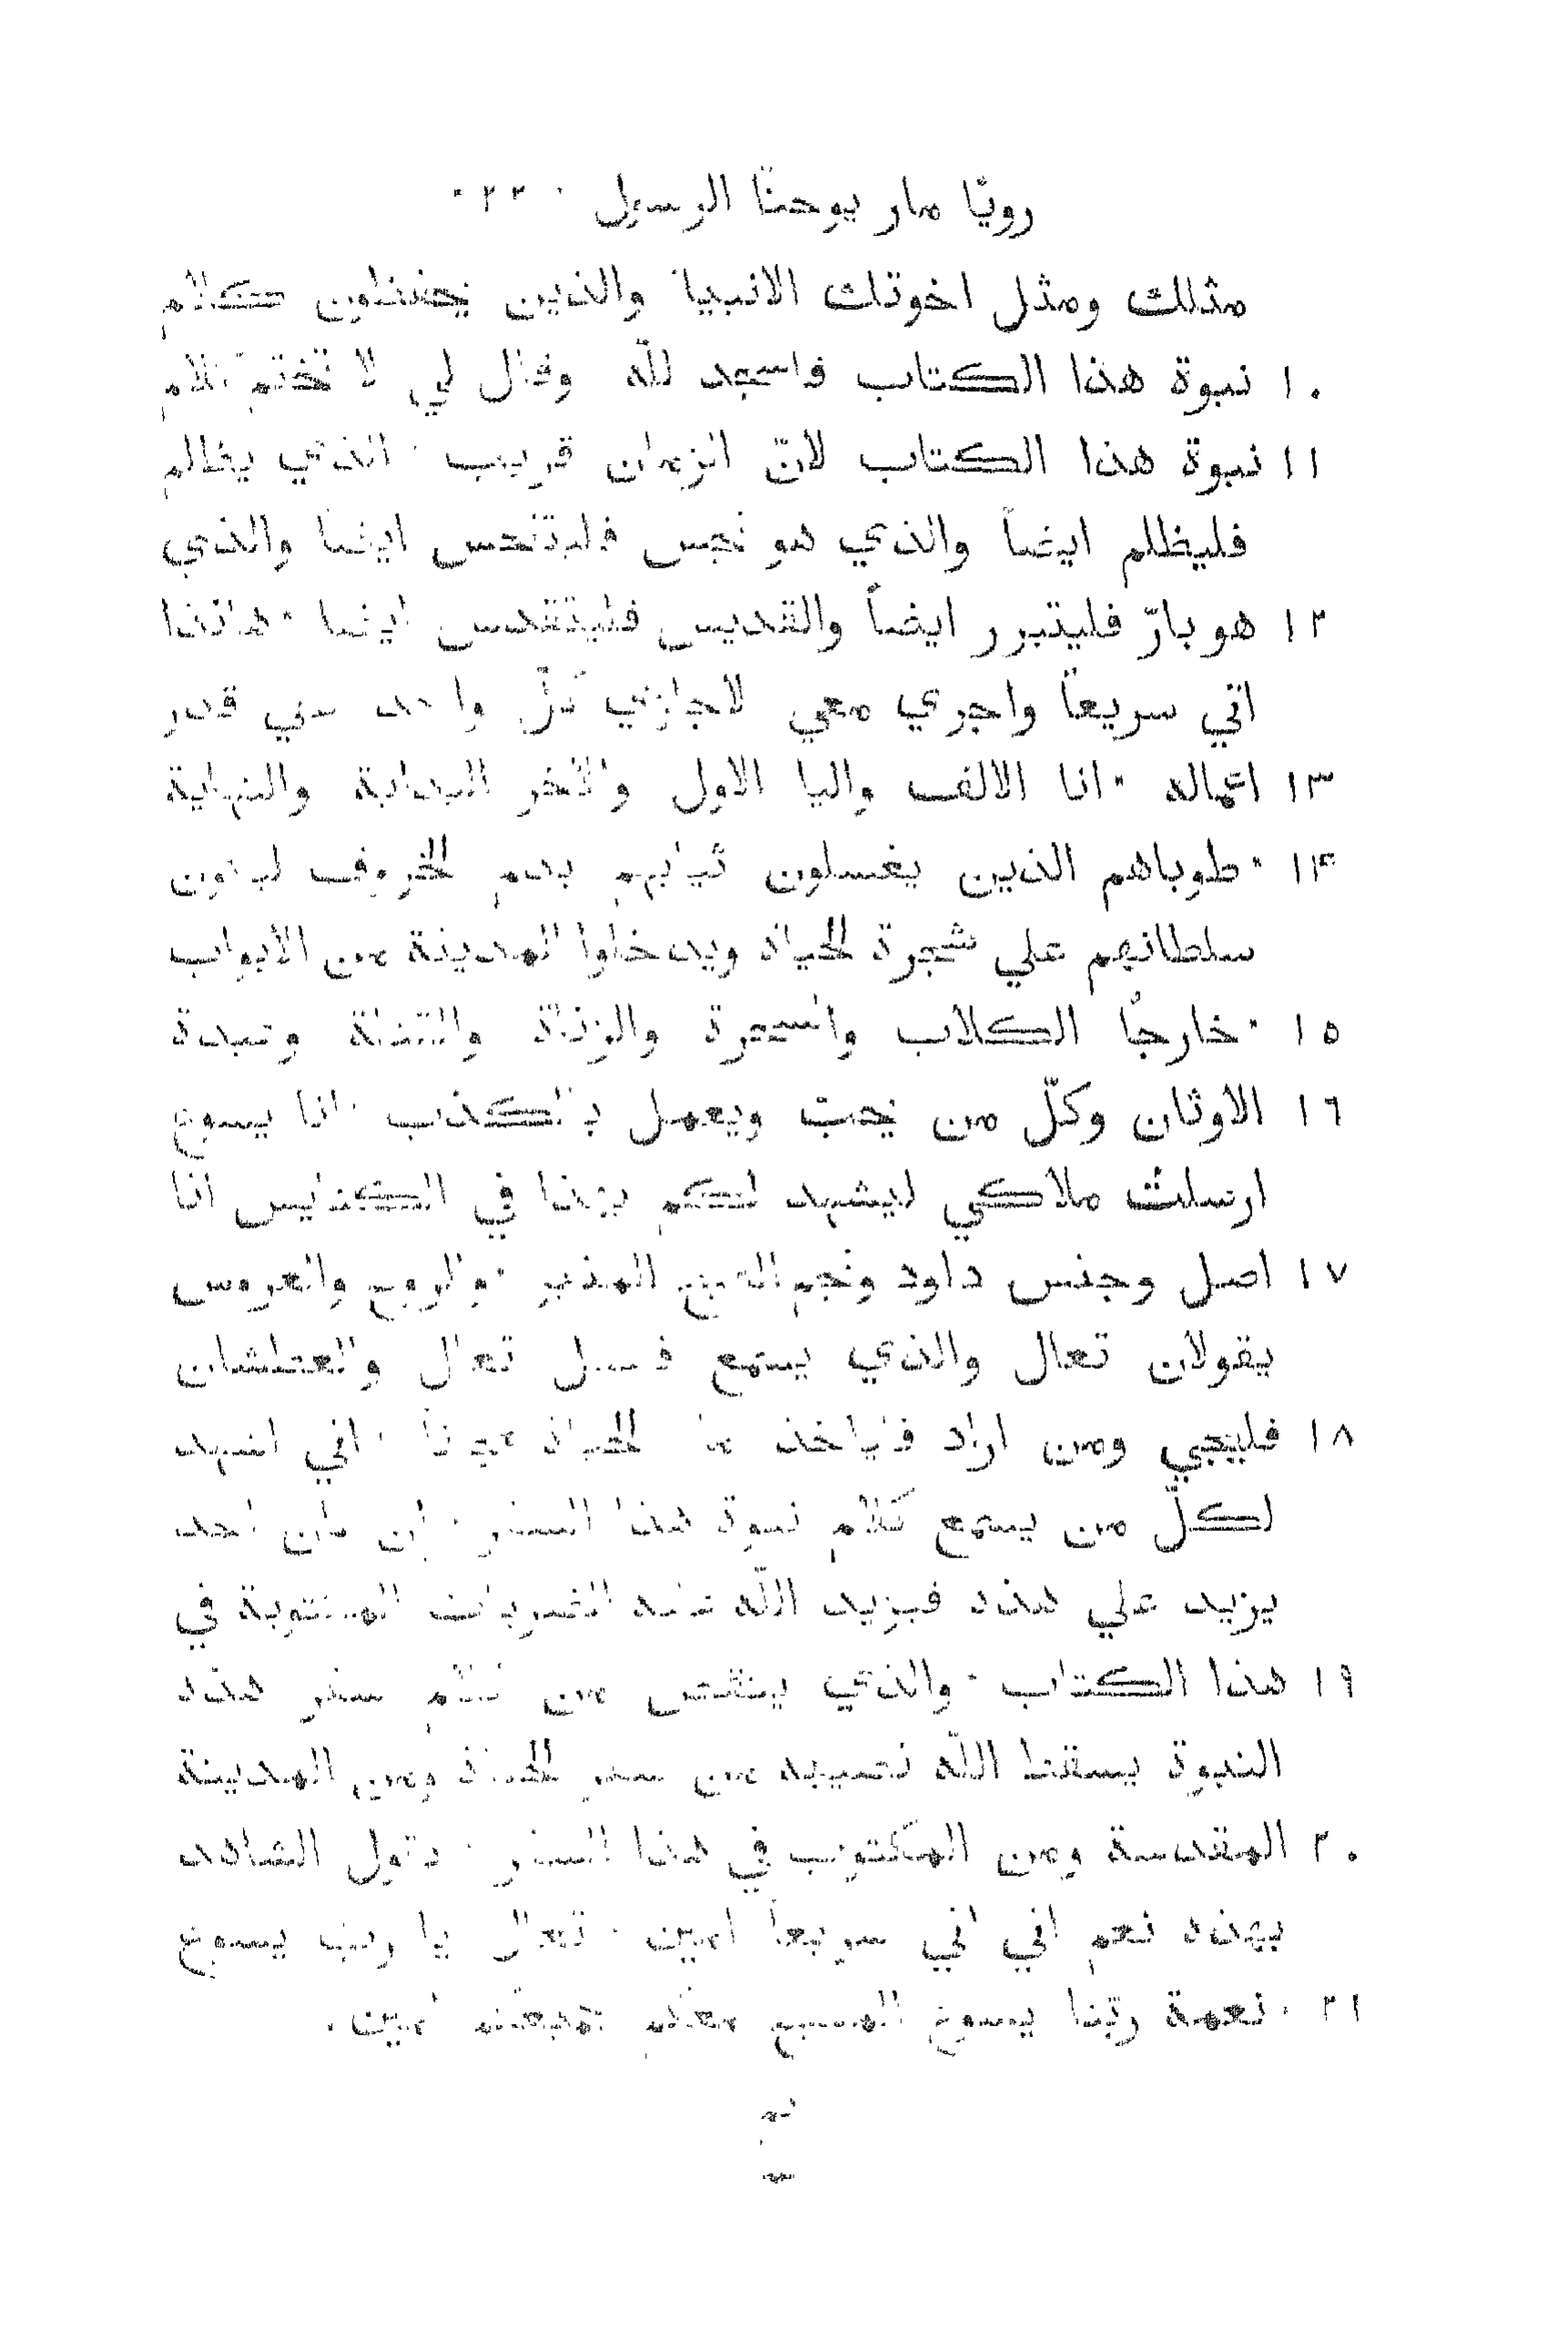 رويّا مار يوحنّا الرسول · ٢٢ ·
مثلك ومثل اخوتك الانبيا والذين يحفظون كلام
١٠ نبوة هذا الكتاب فاسجد للّه وقال لي لا تختم كلام
١١ نبوة هذا الكتاب لانّ الزمان قريب · الذي يظلم
فليظلم ايضاً والذي هو نجس فليتنجس ايضا والذي
١٢ هو بارّ فليتبرر ايضاً والقديس فليتقدس ايضا · هانذا
اتي سريعاً واجري معي لاجازي كلّ واحد علي قدر
١٣ اعماله · انا الالف واليا الاول والاخر البداية والنهاية
١٤ · طوباهم الذين يغسلون ثيابهم بدم الخروف ليكون
سلطانهم علي شجرة الحياة ويدخلوا المدينة من الابواب
١٥ · خارجاً الكلاب والسحرة والزناة والقتلة وعبدة
١٦ الاوثان وكلّ من يحبّ ويعمل بالكذب · انا يسوع
ارسلت ملاكي ليشهد لكم بهذا في الكنايس انا
١٧ اصل وجنس داود ونجم الصبح المنير · والروح والعروس
يقولان تعال والذي يسمع فليقل تعال والعطشان
١٨ فلييجي ومن اراد فلياخذ ما الحياة مجاناً · اني اشهد
لكلّ من يسمع كلام نبوة هذا السفر · ان كان احد
يزيد علي هذه فيزيد اللّه عليه الضربات المكتوبة في
١٩ هذا الكتاب · والذي ينقص من كلام سفر هذه
النبوة يسقط اللّه نصيبه من سفر الحياة ومن المدينة
٢٠ المقدسة ومن المكتوب في هذا السفر · يقول الشاهد
بهذه نعم اني اتي سريعاً امين · تعال يا ربّ يسوع
٢١ · نعمة ربّنا يسوع المسيح معكم جميعكم امين ·